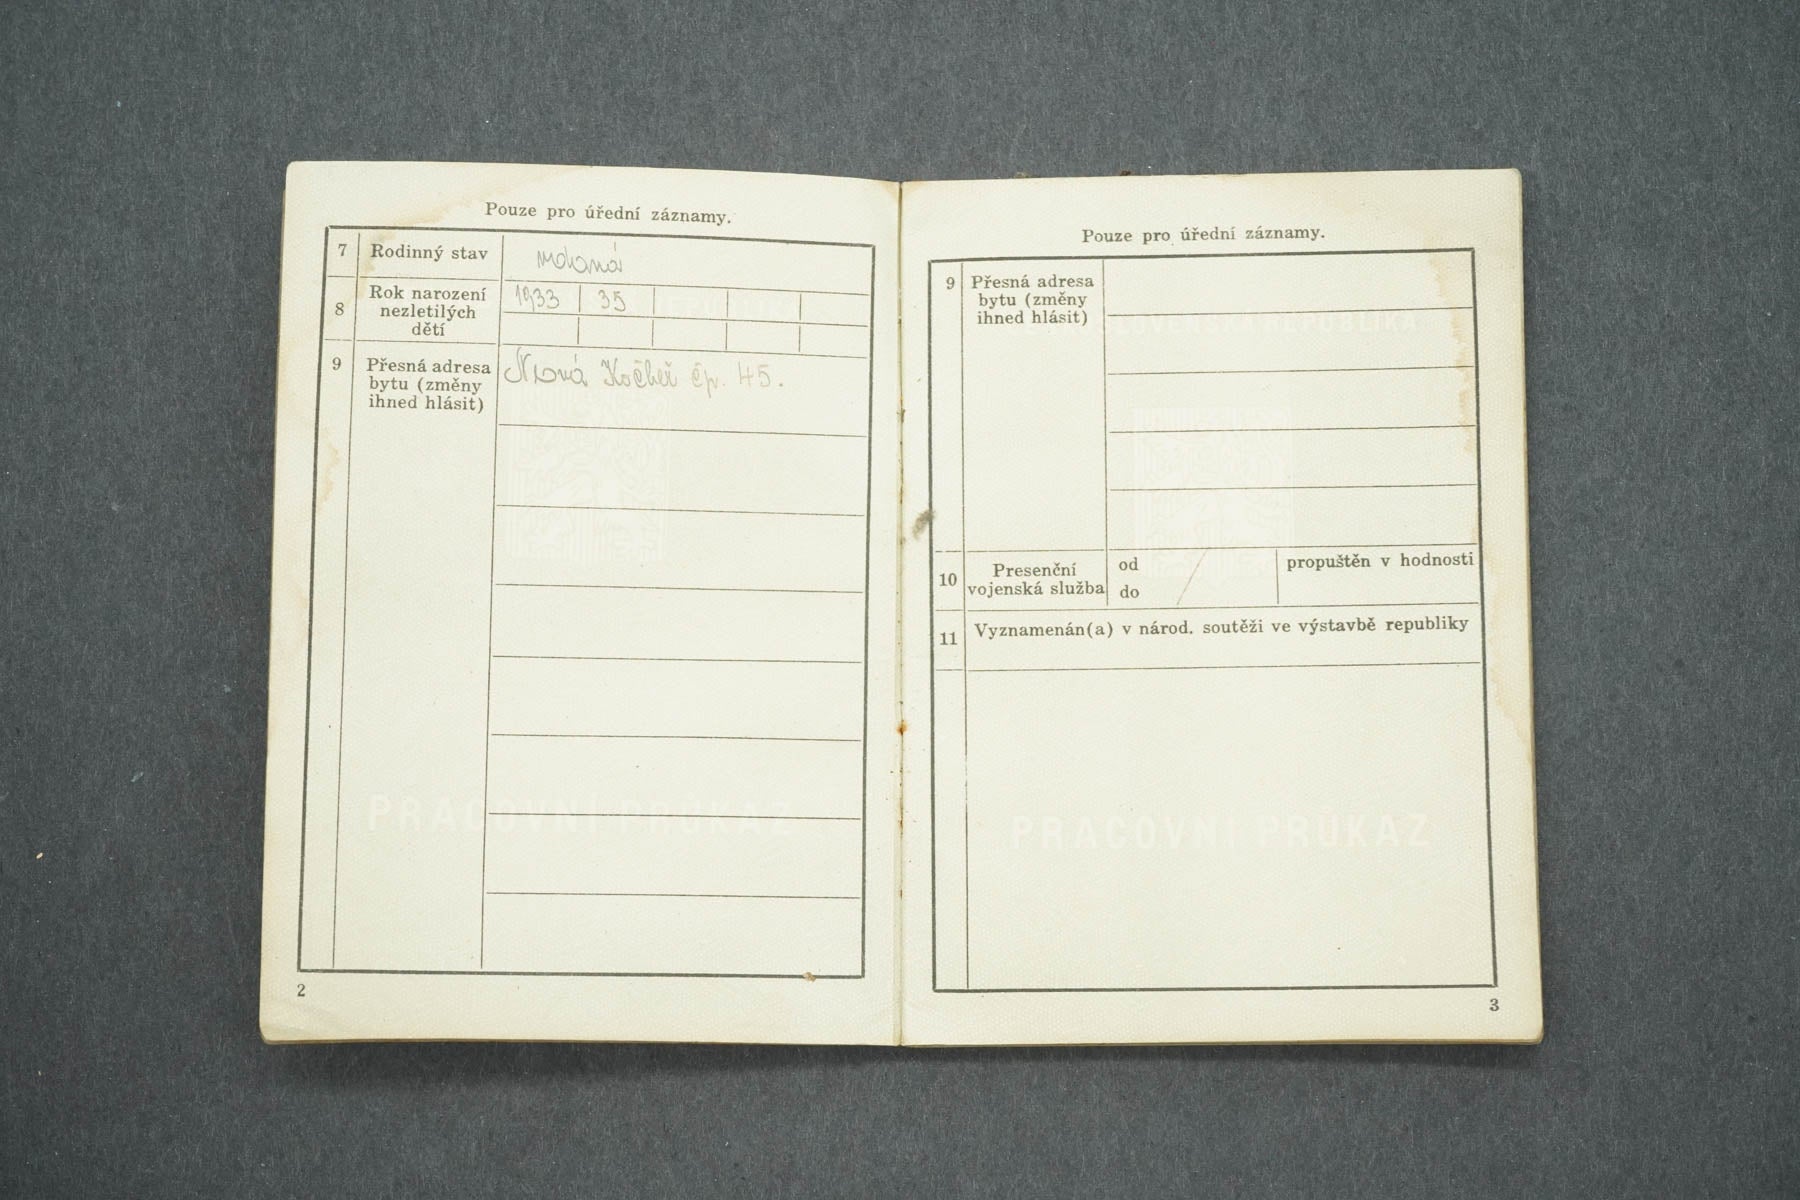 Pouze pro úřední záznamy.
7 Rodinný stav vdaná
8 Rok narození nezletilých dětí 1933 35
9 Přesná adresa bytu (změny ihned hlásit) Nová čp. 45.
PRACOVNÍ PRŮKAZ
2
Pouze pro úřední záznamy.
9 Přesná adresa
bytu (změny
ihned hlásit)
REPUBLIKA
10 Presenční
vojenská služba
od
do
propuštěn v hodnosti
11 Vyznamenán(a) v národ. soutěži ve výstavbě republiky
PRACOVNÍ PRŮKAZ
3